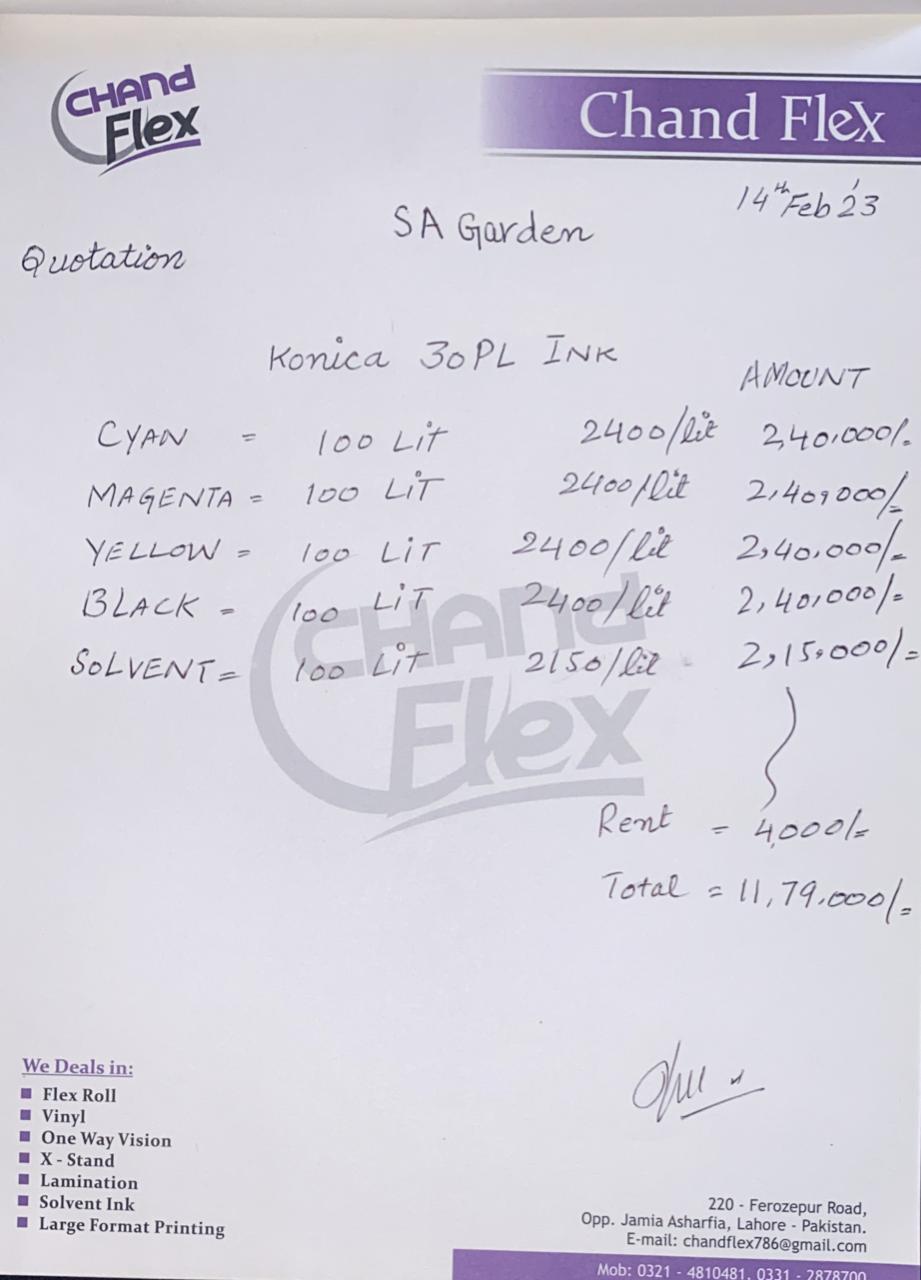 CHAND
Flex
Chand Flex
14th Feb '23
SA Garden
Quotation
Konica 30PL INK
AMOUNT
CYAN = 100 LiT 2400/lit 2,40,000/-
MAGENTA = 100 LiT 2400/lit 2,40,000/=
YELLOW = 100 LiT 2400/lit 2,40,000/=
BLACK = 100 LiT 2400/lit 2,40,000/=
SOLVENT = 100 LiT 2150/lit 2,15,000/=
CHAND
Flex
Rent = 4,000/=
Total = 11,79,000/=
We Deals in:
Flex Roll
Vinyl
One Way Vision
X - Stand
Lamination
Solvent Ink
Large Format Printing
220 - Ferozepur Road,
Opp. Jamia Asharfia, Lahore - Pakistan.
E-mail: chandflex786@gmail.com
Mob: 0321 - 4810481, 0331 - 2878700